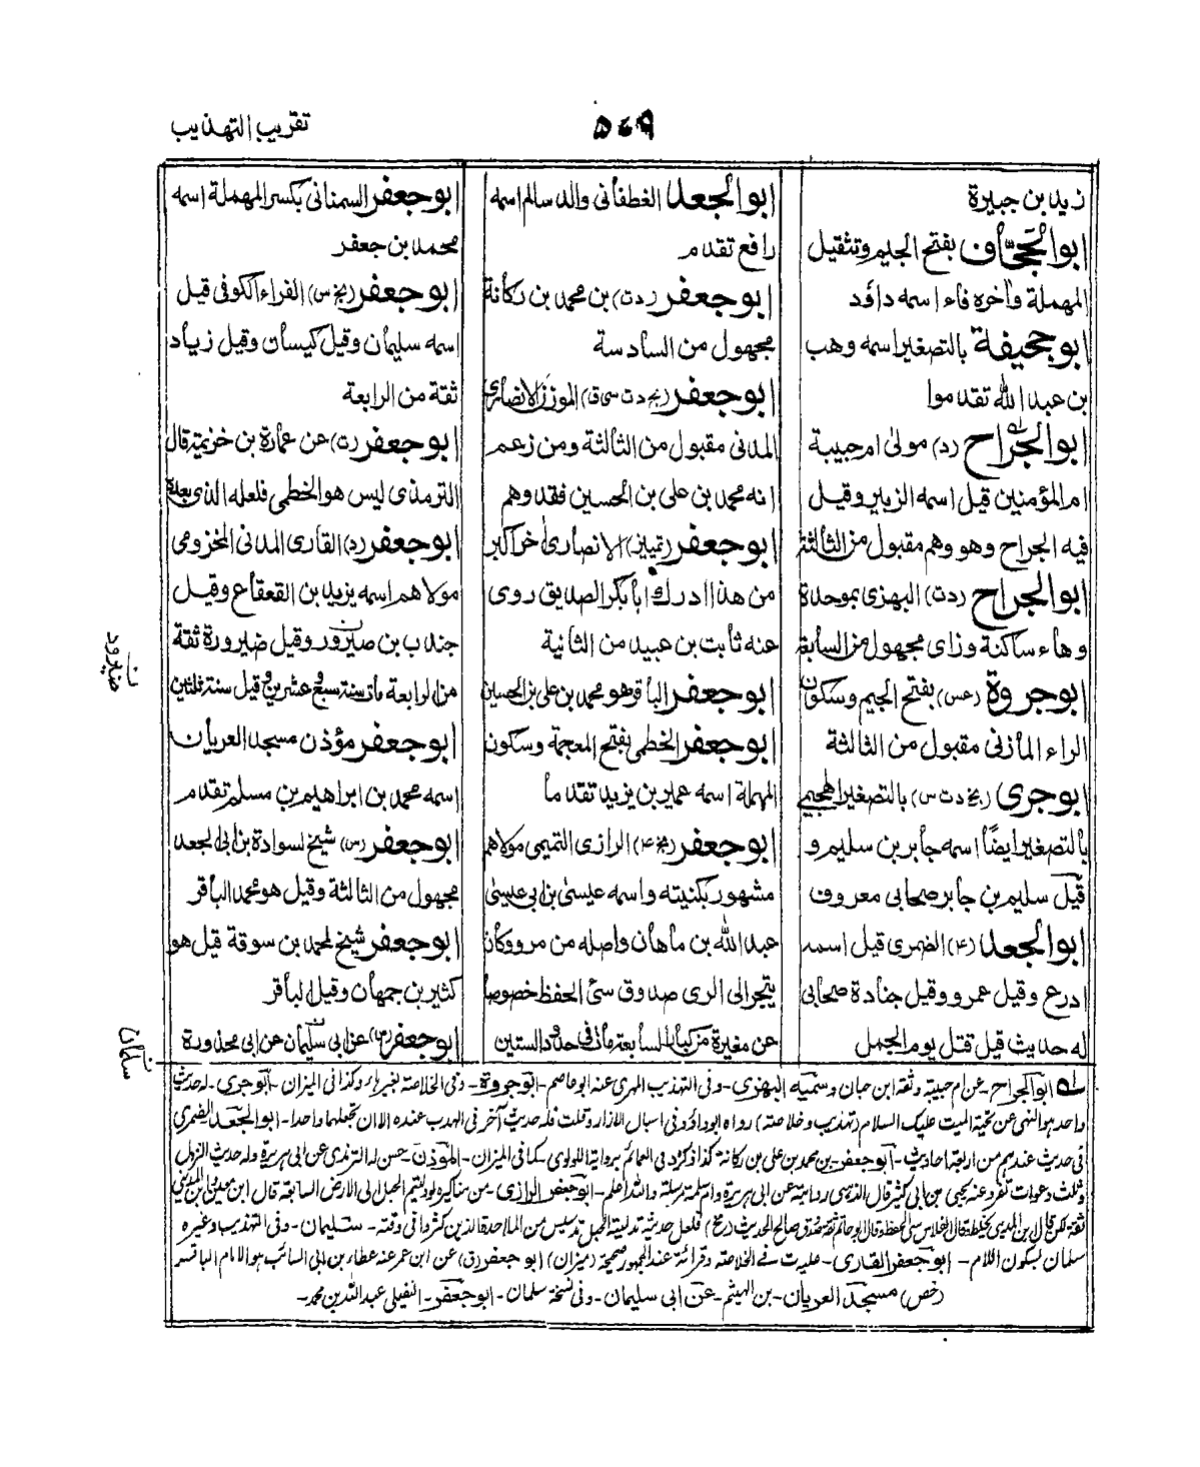 تقریب التهذیب
۵۶۹
زید بن جبیرة
ابو الجَحَّاف بفتح الجیم وتثقیل
المهملة وآخره فاء اسمه داؤد
ابو جحیفة بالتصغیر اسمه وهب
بن عبد الله تقدموا
ابو الجَرَّاح (د) مولی ام حبیبة
ام المؤمنین قیل اسمه الزبیر وقیل
فیه الجراح وهو وهم مقبول من الثالثة
ابو الجراح (دت) البهزی بموحدة
وهاء ساکنة وزای مجهول من السابعة
ابو جروة (عس) بفتح الجیم وسکون
الراء المازنی مقبول من الثالثة
ابو جری (بخ دت س) بالتصغیر الهجیمی
بالتصغیر ایضًا اسمه جابر بن سلیم و
قیل سلیم بن جابر صحابی معروف
ابو الجعد (۴) الضمری قیل اسمه
ادرع وقیل عمرو وقیل جنادة صحابی
له حدیث قیل قتل یوم الجمل
ابو الجعد الغطفانی والد سالم اسمه
رافع تقدم
ابو جعفر (دت) بن محمد بن رکانة
مجهول من السادسة
ابو جعفر (بخ دت سی ق) المؤذن الانصاری
المدنی مقبول من الثالثة ومن زعم
انه محمد بن علی بن الحسین فقد وهم
ابو جعفر (تمییز) الانصاری اخر اکبر
من هذا ادرک ابا بکر الصدیق روی
عنه ثابت بن عبید من الثانیة
ابو جعفر الباقر هو محمد بن علی بن الحسین
ابو جعفر الخطمی بفتح المعجمة وسکون
المهملة اسمه عمیر بن یزید تقدما
ابو جعفر (بخ ۴) الرازی التمیمی مولاهم
مشهور بکنیته واسمه عیسی بن ابی عیسی
عبد الله بن ماهان واصله من مرو وکان
یتجر الی الری صدوق سئ الحفظ خصوصا
عن مغیرة من کبار السابعة مات فی حدود الستین
ابو جعفر السمنانی بکسر المهملة اسمه
محمد بن جعفر
ابو جعفر (بخ س) الفراء الکوفی قیل
اسمه سلیمان وقیل کیسان وقیل زیاد
ثقة من الرابعة
ابو جعفر (ت) عن عمارة بن خزیمة قال
الترمذی لیس هو الخطمی فلعله الذی بعده
ابو جعفر (د) القاری المدنی المخزومی
مولاهم اسمه یزید بن القعقاع وقیل
جندب بن صیرور وقیل ضیرورة ثقة
من الرابعة مات سنة سبع وعشرین وقیل سنة ثلثین
ابو جعفر مؤذن مسجد العریان
اسمه محمد بن ابراهیم بن مسلم تقدم
ابو جعفر (س) شیخ لسوادة بن ابی الجعد
مجهول من الثالثة وقیل هو محمد الباقر
ابو جعفر شیخ لمحمد بن سوقة قیل هو
کثیر بن جمهان وقیل الباقر
ابو جعفر (س) عن ابی سلیمان عن ابی محذورة
ن
ضیرود
ن
سلمان
له ابو الجراح- عن ام حبیبة وثقه ابن حبان وسمیه البهزی- وفی التهذیب المهری عنه ابو عاصم- ابو جروة- وفی الخلاصة بغیر هاء وکذا فی المیزان- ابو جری- له حدیث
واحد هو النهی عن تحیة المیت علیک السلام (تهذیب وخلاصة) رواه ابو داؤد فی اسبال الازار وقلت فله حدیث آخر فی الهدب عنده الا ان تجعلهما واحدا- ابو الجعد الضمری
فی حدیث عندهم من اربعة احادیث- ابو جعفر- بن محمد بن علی بن رکانة کذا ذکره د فی العمائم بروایة اللولوی- کما فی المیزان- المؤذن- حسن له الترمذی عن ابی هریرة وله حدیث النزول
وثلث دعوات تفرد عنه یحیی بن ابی کثیر قال الذهبی روایته عن ابی هریرة وام سلمة مرسلة والله اعلم- ابو جعفر الرازی-
سلمان بسکون اللام- ابو جعفر القاری- علیه ت فی الخلاصة وقرائة عند الجمهور صحیحة (میزان) (ابو جعفر (ق) عن ابن عمر عنه عطاء بن ابی السائب هو الامام الباقر
(خص) مسجد العریان- بن الهیثم- عن ابی سلیمان- وفی نسخة سلمان- ابو جعفر- النفیلی عبد الله بن محمد-